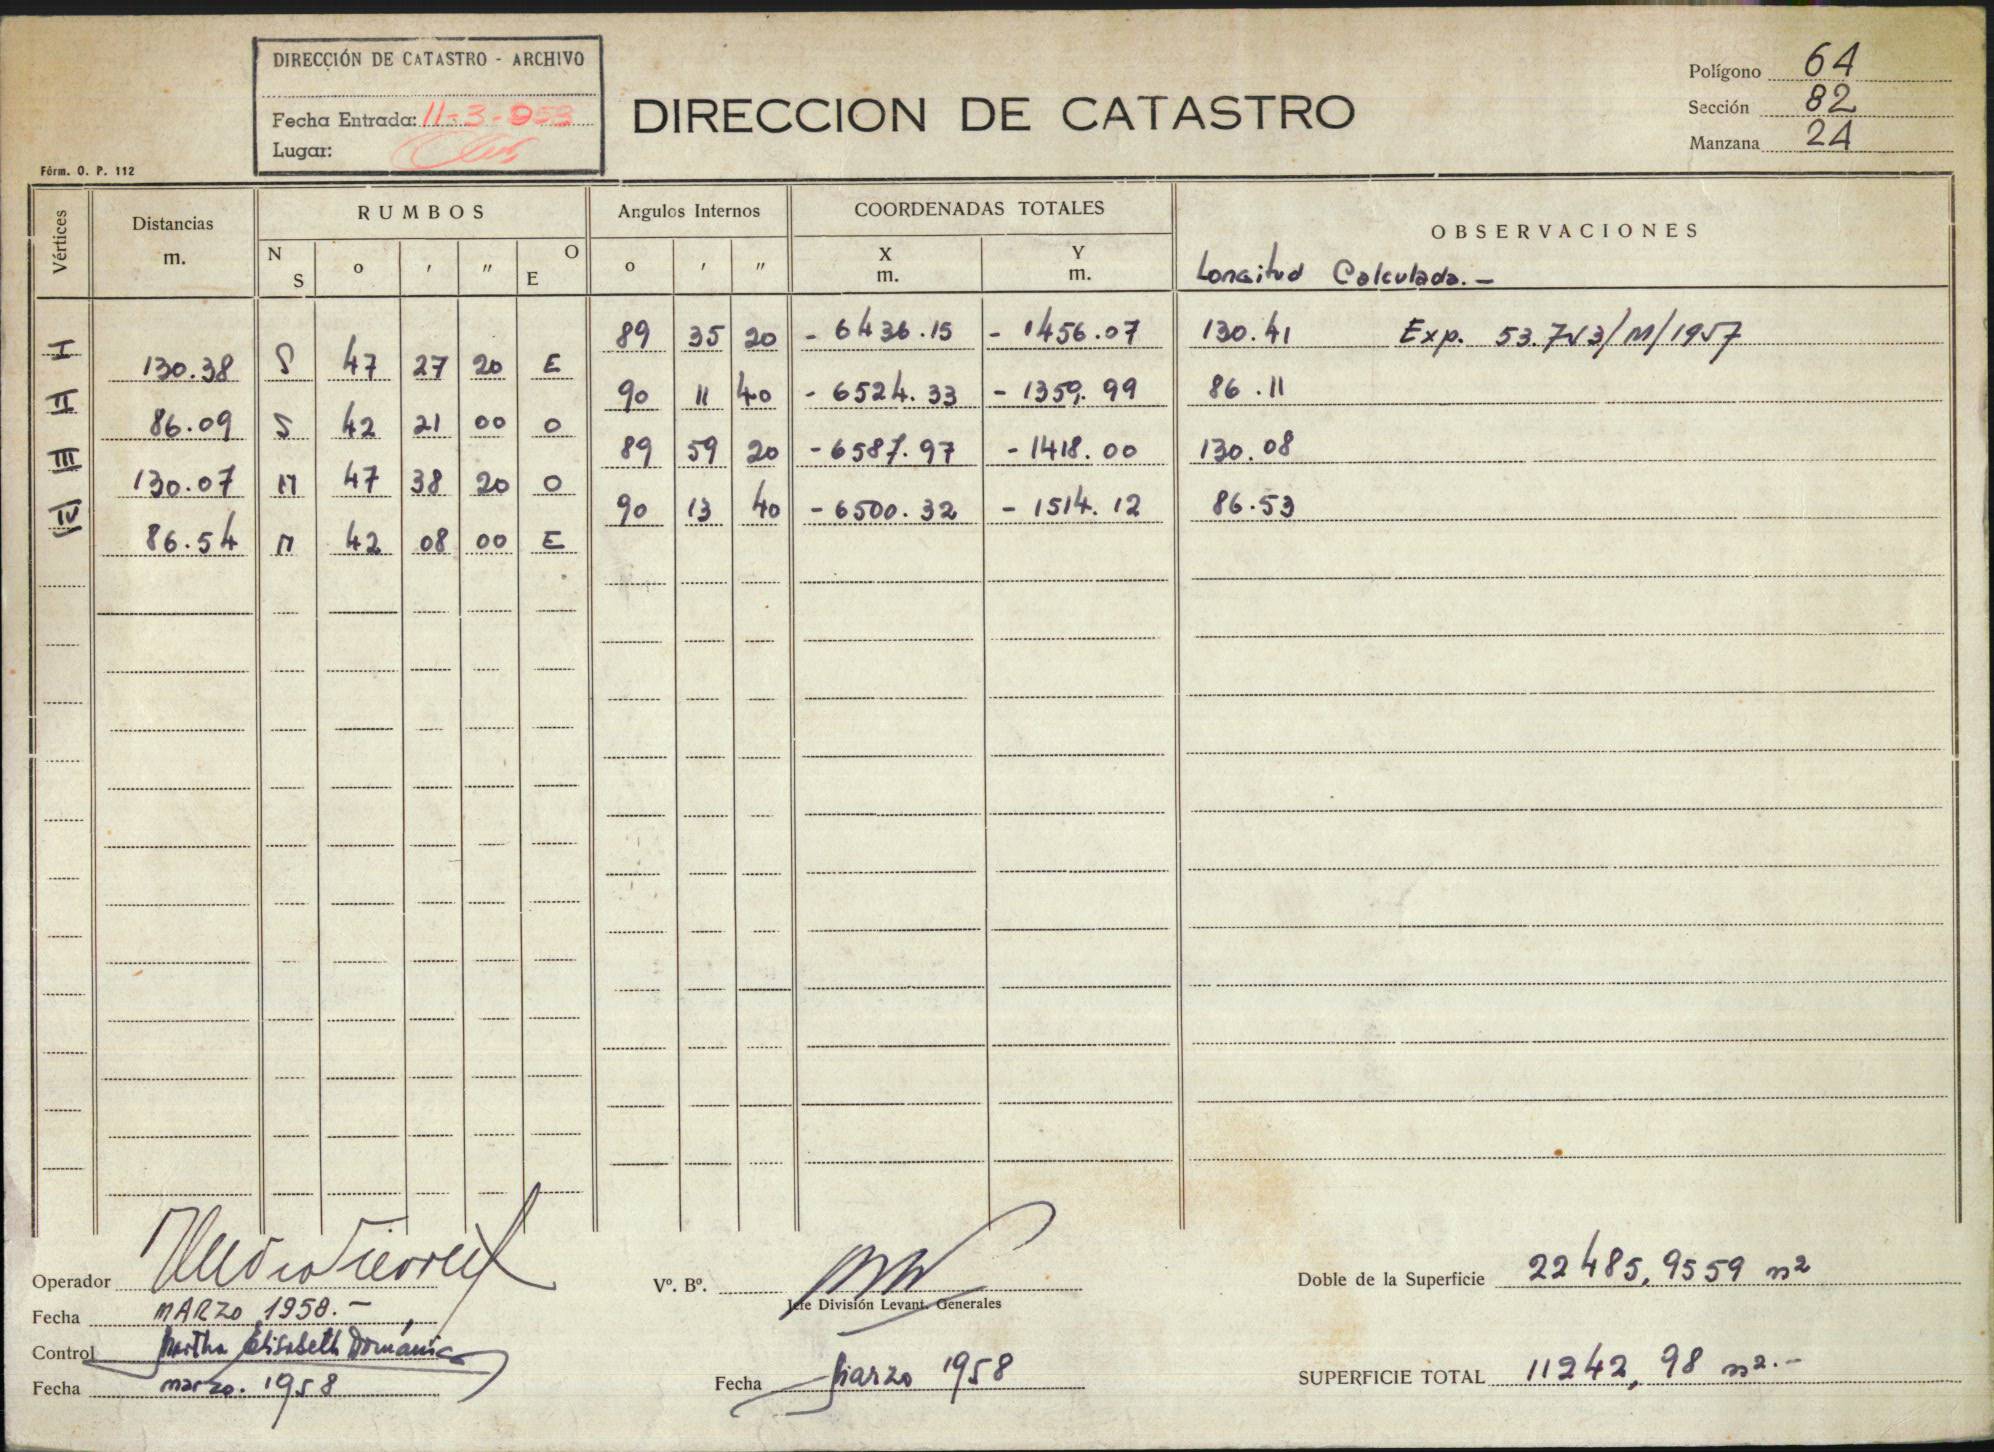 DIRECCIÓN DE CATASTRO - ARCHIVO
Fecha Entrada: 11-3-953
Lugar:
DIRECCION DE CATASTRO
Polígono 64
Sección 82
Manzana 24
Fórm. O. P. 112
Vértices Distancias m. RUMBOS Angulos Internos COORDENADAS TOTALES OBSERVACIONES
N S o ′ ″ O E o ′ ″ X m. Y m. Longitud Calculada.-
I 89 35 20 - 6436.15 - 1456.07 130.41 Exp. 53.753/M/1957
130.38 S 47 27 20 E
II 90 11 40 - 6524.33 - 1359.99 86.11
86.09 S 42 21 00 O
III 89 59 20 - 6587.97 - 1418.00 130.08
130.07 N 47 38 20 O
IV 90 13 40 - 6500.32 - 1514.12 86.53
86.54 N 42 08 00 E
Operador
Fecha MARZO 1958.-
Control Martha Elisabeth
Fecha marzo. 1958
Vº. Bº.
Jefe División Levant. Generales
Fecha Marzo 1958
Doble de la Superficie 22485,9559 m2
SUPERFICIE TOTAL 11242,98 m2.-